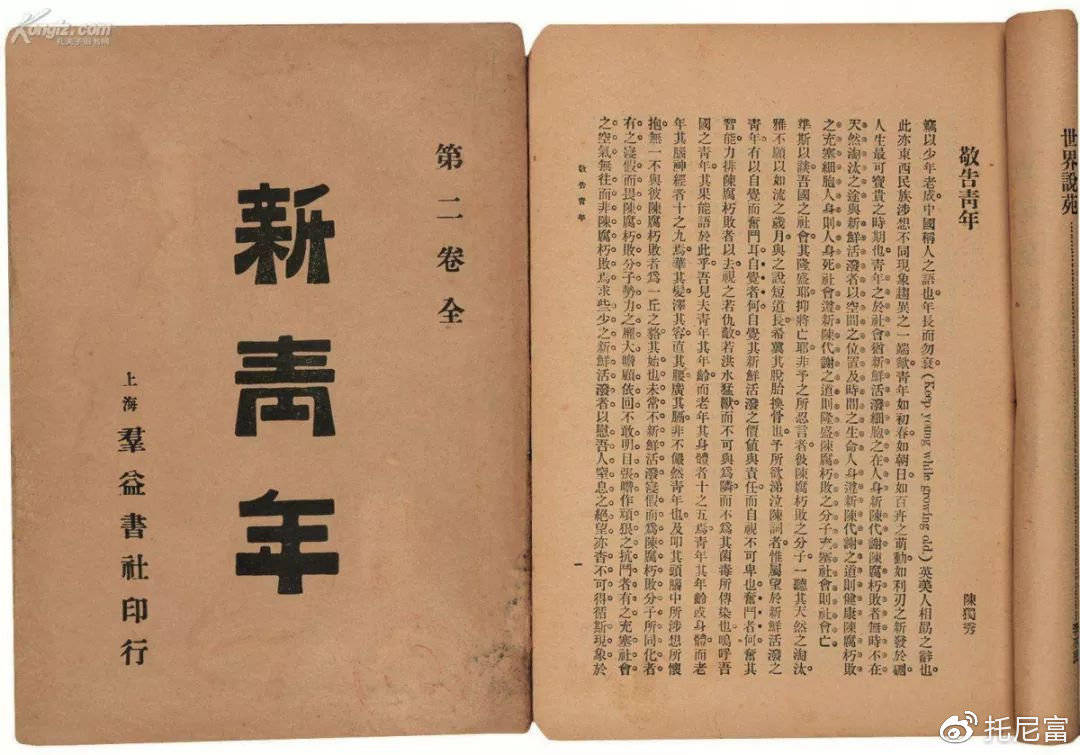 Kongfz.com
孔夫子旧书网
第二卷全
新青年
上海羣益書社印行
世界說苑
敬告青年
陳獨秀
竊以少年老成中國稱人之語也年長而勿衰(Keep young while growing old.)英美人相勖之辭也
此亦東西民族涉想不同現象趨異之一端歟青年如初春如朝日如百卉之萌動如利刃之新發於硎
人生最可寶貴之時期也青年之於社會猶新鮮活潑細胞之在人身新陳代謝陳腐朽敗者無時不在
天然淘汰之途與新鮮活潑者以空間之位置及時間之生命人身遵新陳代謝之道則健康陳腐朽敗
之充塞細胞人身則人身死社會遵新陳代謝之道則隆盛陳腐朽敗之分子充塞社會則社會亡
準斯以談吾國之社會其隆盛耶抑將亡耶非予之所忍言者彼陳腐朽敗之分子一聽其天然之淘汰
雅不願以如流之歲月與之說短道長希冀其脫胎換骨也予所欲涕泣陳詞者惟屬望於新鮮活潑之
青年有以自覺而奮鬥耳自覺者何自覺其新鮮活潑之價值與責任而自視不可卑也奮鬥者何奮其
智能力排陳腐朽敗者以去視之若仇敵若洪水猛獸而不可與爲鄰而不爲其菌毒所傳染也嗚呼吾
國之青年其果能語於此乎吾見夫青年其年齡而老年其身體者十之五焉青年其年齡或身體而老
年其腦神經者十之九焉華其髮澤其容直其腰廣其膈非不儼然青年也及叩其頭腦中所涉想所懷
抱無一不與彼陳腐朽敗者爲一丘之貉其始也未常不新鮮活潑寖假而爲陳腐朽敗分子所同化者
有之寖假而畏陳腐朽敗分子勢力之龐大瞻顧依回不敢明目張膽作頑狠之抗鬥者有之充塞社會
之空氣無往而非陳腐朽敗焉求些少之新鮮活潑者以慰吾人窒息之絕望亦杳不可得循斯現象於
敬告青年
一
托尼富